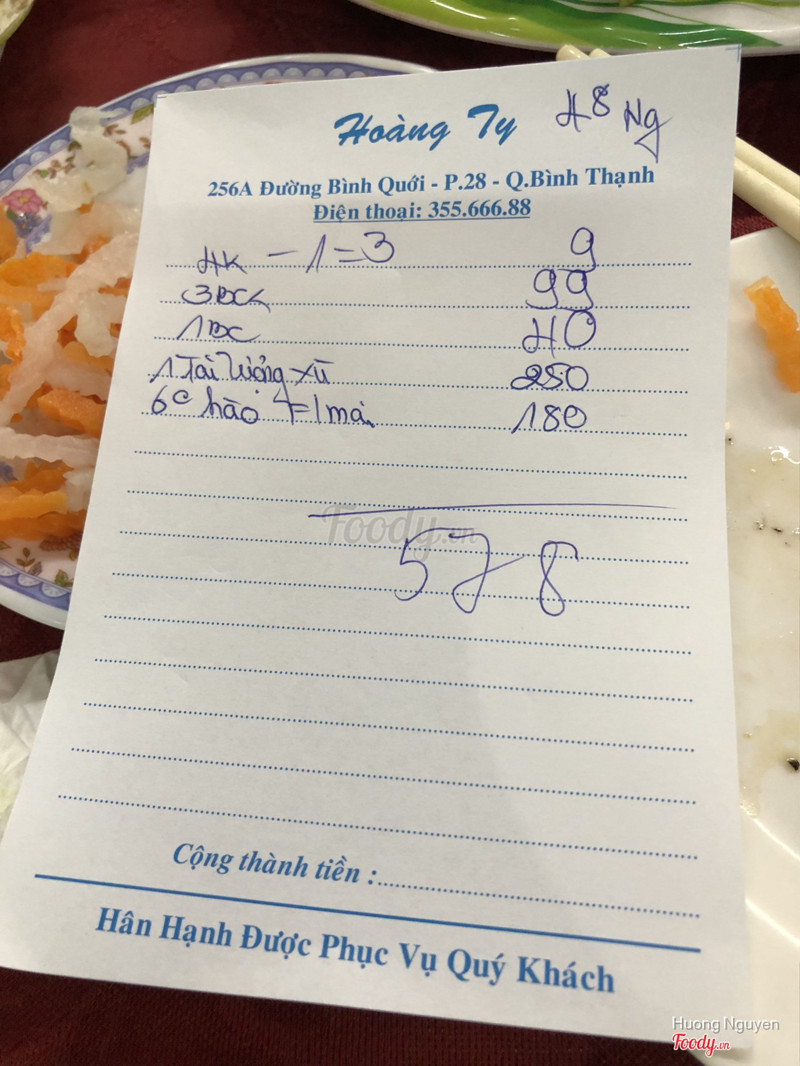 Hoàng Ty
A8 Ng
256A Đường Bình Quới - P.28 - Q.Bình Thạnh
Điện thoại: 355.666.88
4K - 1 = 3 9
3BCL 99
1BC 40
1 Tai tượng xù 250
6c hào 180
Foody.vn
578
Cộng thành tiền :
Hân Hạnh Được Phục Vụ Quý Khách
Huong Nguyen
Foody.vn